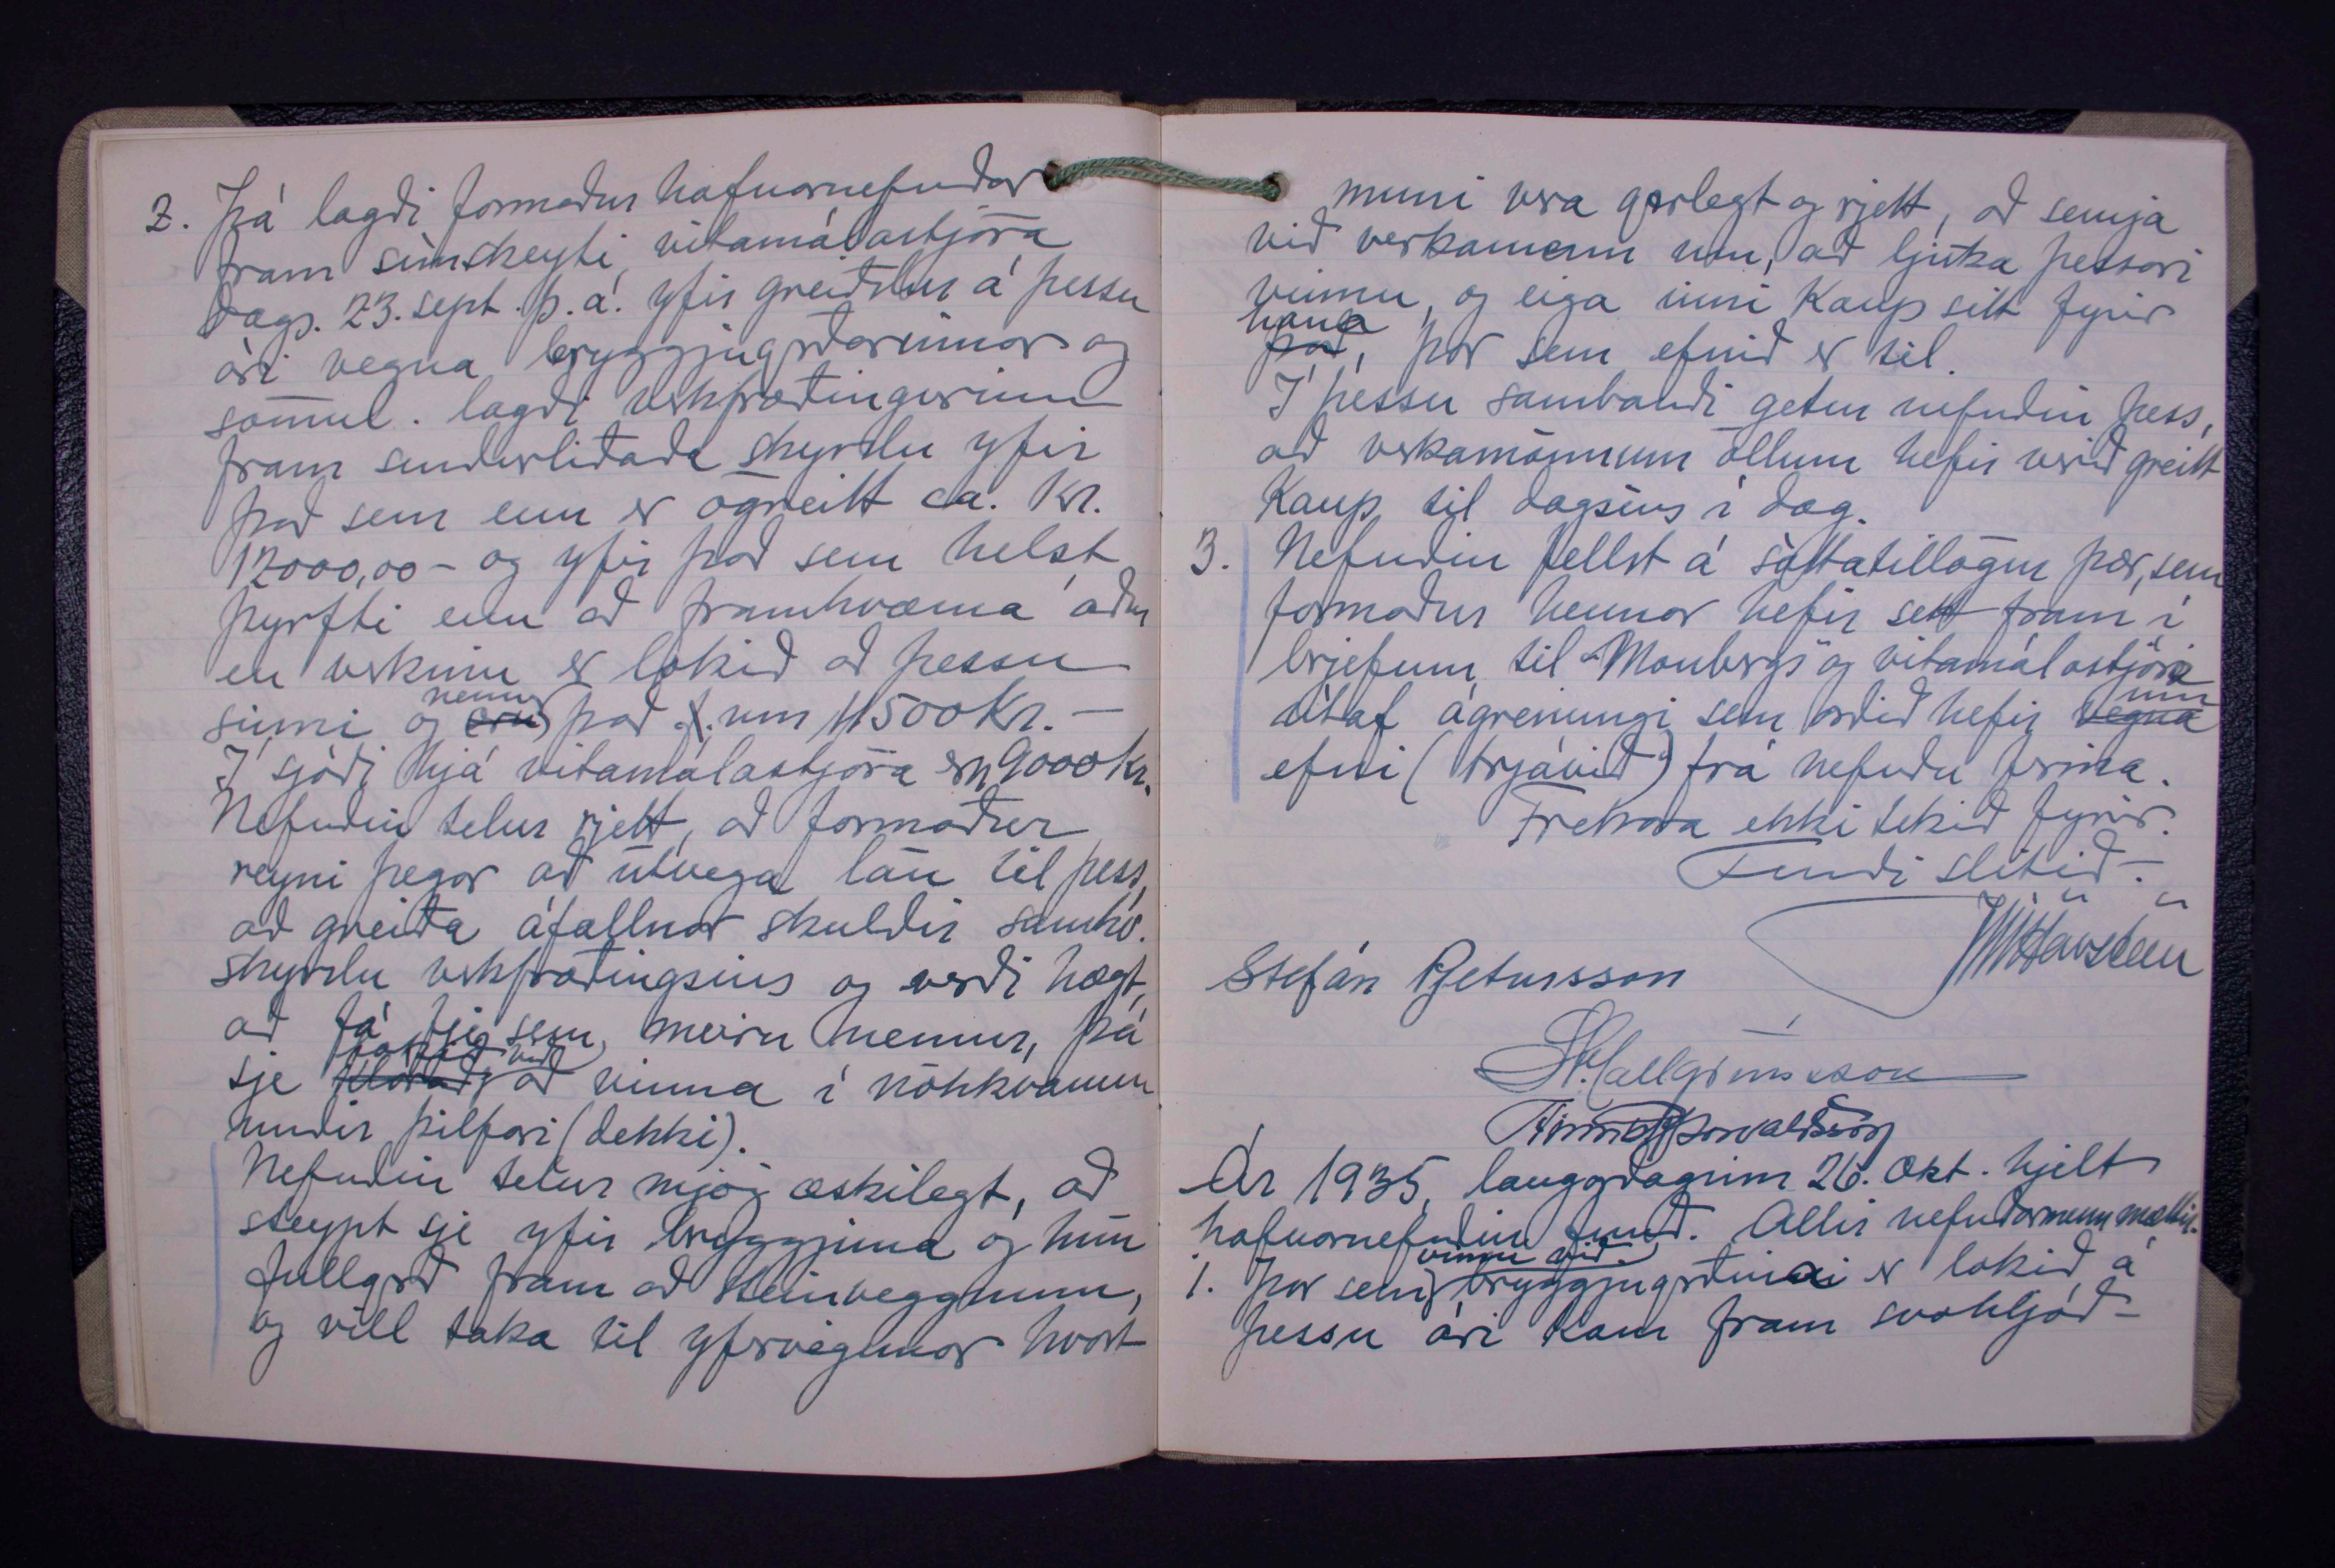 2. Þá lagði formaður hafnarnefndar
fram símskeyti vitamálastjóra
dags. 23. sept. þ. á. yfir greiðslur á þessu
ári vegna bryggjugerðarinnar og
sömul. lagði verkfræðingurinn
fram sundurliðaða skyrslu yfir
það sem enn er ógreitt ca. Kr.
12000,00 - og yfir það sem helst
þyrfti enn að framkvæma áður
en verkinu er lokið að þessu
sinni og nemur það um 11500 Kr. -
Í sjóði hjá vitamálastjóra eru 9000 kr.
Nefndin telur rjett, að formaður
reyni þegar að útvega lán til þess,
að greiða áfallnar skuldir samkv.
skyrslu verkfræðingsins og verði hægt,
að fá fje sem meiru nemur, þá
sje við að vinna í nökkvanum
undir þilfari (dekki).
Nefndin telur mjög æskilegt, að
steypt sje yfir bryggjuna og hún
fullgerð fram að steinveggnum,
og vill taka til yfirvegunar hvort
muni vera gerlegt og rjett, að semja
við verkamenn um, að ljúka þessari
vinnu, og eiga inni Kaup sitt fyrir
hana, þar sem efnið er til.
Í þessu sambandi getur nefndin þess,
að verkamönnum öllum hefir verið greitt
Kaup til dagsins í dag.
3. Nefndin fellst á sáttatillögur þær, sem
formaður hennar hefir sett fram í
brjefum til "Monbergs" og vitamálastjóra
útaf ágreiningi sem orðið hefir um
efni (trjávið) frá nefndu firma.
Frekara ekki tekið fyrir.
Fundi slitið. -
JHavsteen
Stefán Pjetursson
Hallgrímsson
Þorvaldsson
Ár 1935, laugardaginn 26. okt. hjelt
hafnarnefndin fund. Allir nefndarmenn mættir.
1. Þar sem vinnu við bryggjugerðina er lokið á
þessu ári kom fram svohljóð-